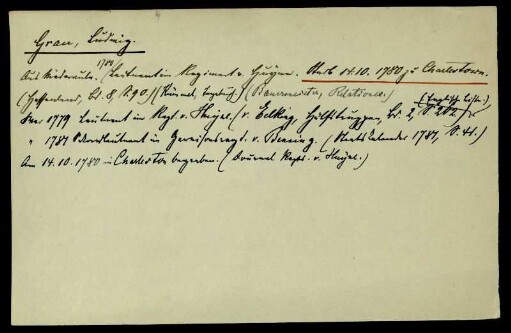 Grau, Ludwig.
Aus Niederaula. 1781 (Leutnant im Regiment v. Huyn. Starb 14.10.1780 zu Charlestown.
(Hessenland, Bd. 8, S. 90.) (Rümmel, Tagebuch.) (Baurmeister, Relationen.)
1779 Leutnant im Regt. v. Huyn. (v. Eelking, Hülfstruppen, Bd. 2, S. 202
" 1781 Leutnant im Garnisonsregt. v. Benning. (Staatskalender 1781, S. 41.)
Am 14.10.1780 in Charleston begraben. (Journal Regt. v. Huyn.)